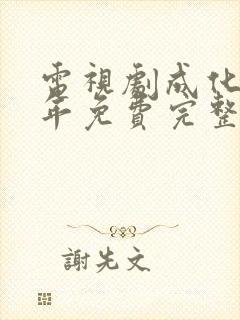 電視劇成化
年免費完整
謝先文